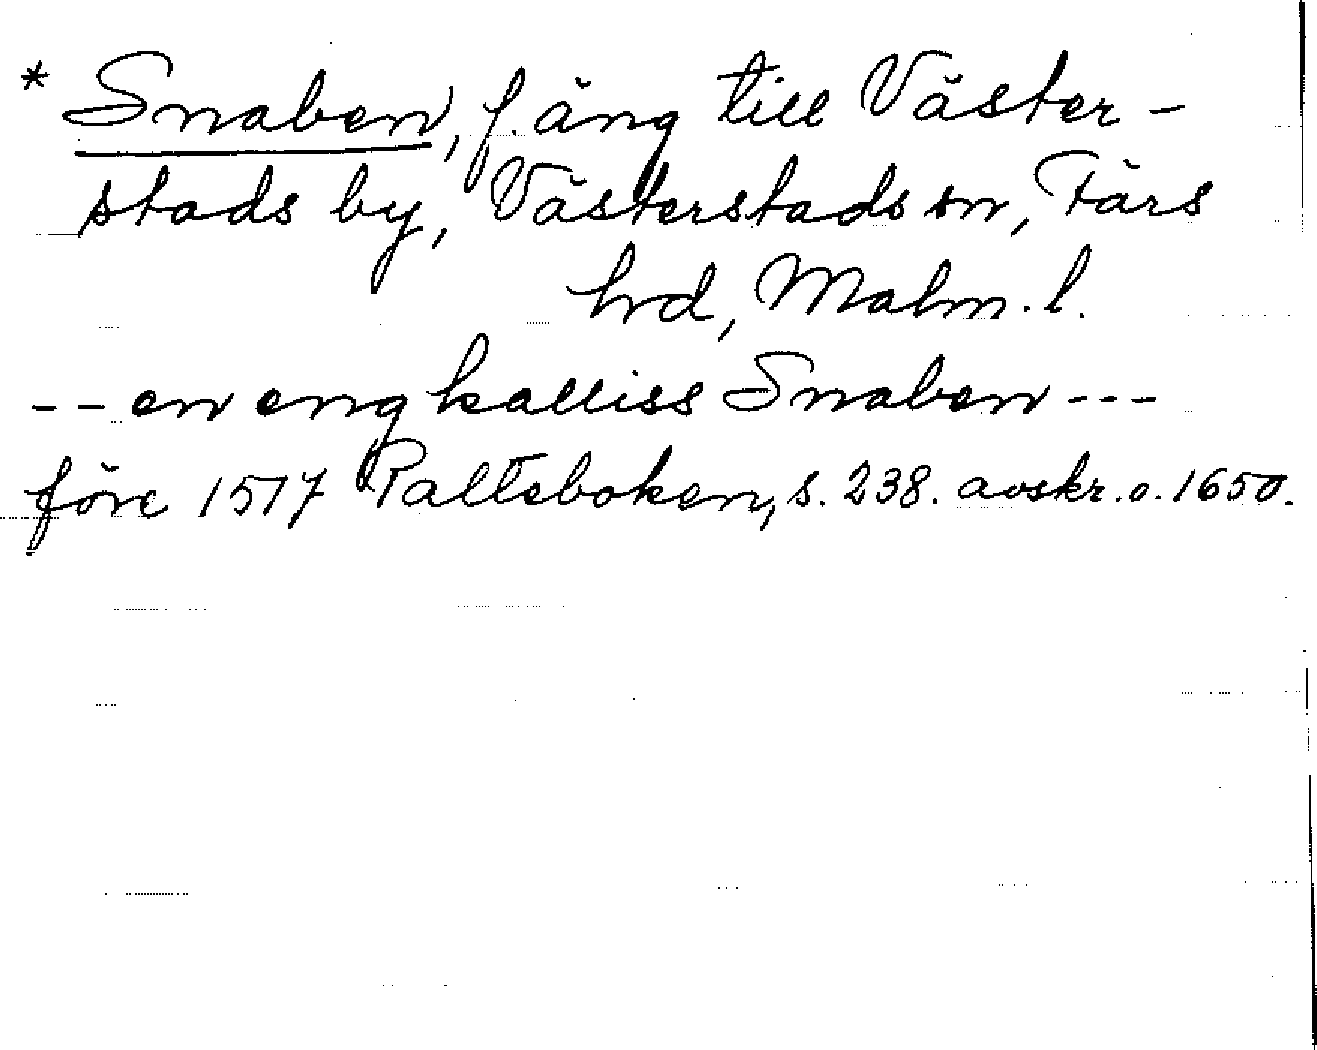 * Snaben, f. äng till Väster-
stads by, Västerstads sn, Färs
hrd, Malm. l.
-- en eng kalliss Snaben ---
före 1517 Palteboken, s. 238. avskr. o. 1650.